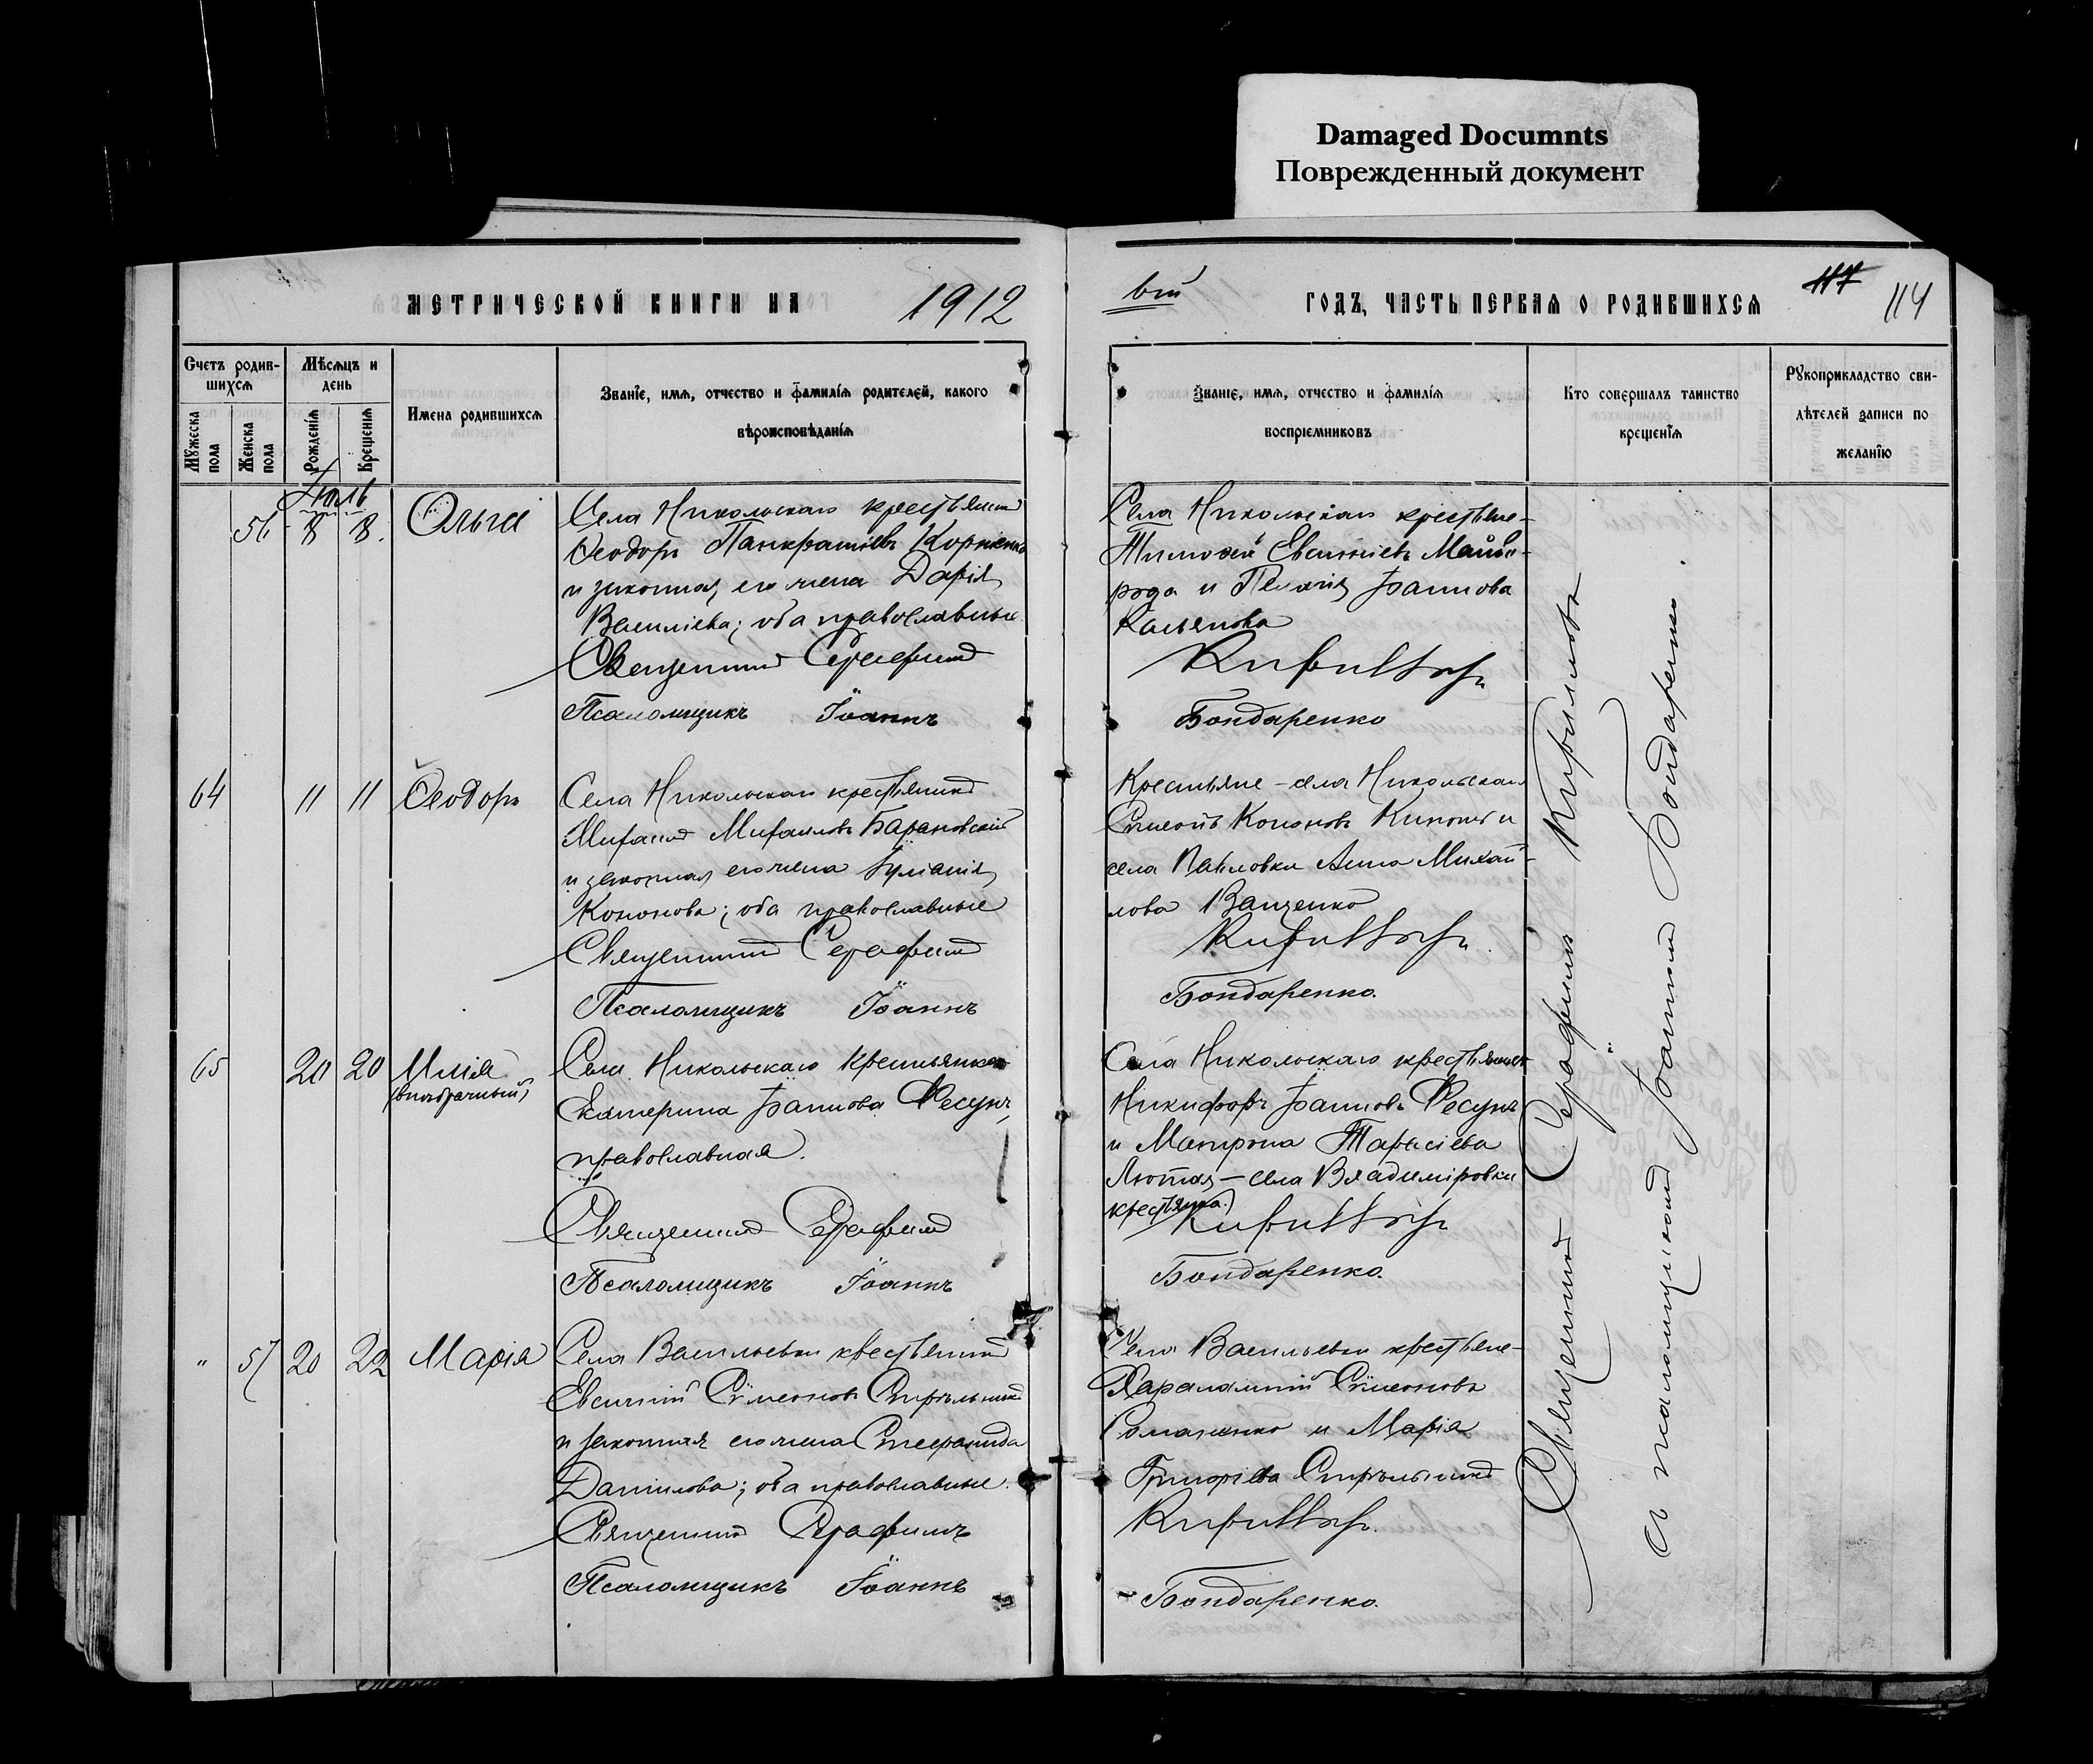 Damaged Documnts
Поврежденный документ
МЕТРИЧЕСКОЙ КНИГИ НА 1912
Счетъ родив-
шихся
Мѣсяцъ и
день
Имена родившихся
Званіе, имя, отчество и фамилія родителей, какого
вѣроисповѣданія
Мужеска
пола
Женска
пола
Рожденія
Крещенія
Іюль
56 8 8. Ольга
Села Никольскаго крестьянинъ
Ѳеодоръ Панкратіевъ Корніенко
и законная его жена Дарія
Василіева; оба православные
Священникъ Серафимъ
Псаломщикъ Іоаннъ
64 11 11 Ѳеодоръ
Села Никольскаго крестьянинъ
Михаилъ Михаиловъ Барановскій
и законная его жена Іуліанія
Кононова; оба православные
Священникъ Серафимъ
Псаломщикъ Іоаннъ
65 20 20 Илія
(внѣбрачный)
Села Никольскаго крестьянка
Екатерина Іоаннова Фесунъ,
православная.
Священникъ Серафимъ
Псаломщикъ Іоаннъ
" 57 20 22 Марія
Села Васильевки крестьянинъ
Евсигній Сѵмеоновъ Стрѣльникъ
и законная его жена Стефанида
Даніилова; оба православные.
Священникъ Серафимъ
Псаломщикъ Іоаннъ
вій ГОДЪ, ЧАСТЬ ПЕРВАЯ О РОДИВШИХСЯ 117 114
Званіе, имя, отчество и фамилія
воспріемниковъ
Кто совершалъ таинство
крещенія
Рукоприкладство сви-
дѣтелей записи по
желанію
Села Никольскаго крестьяне-
Тимоѳей Евсигніевъ Майбо-
рода и Пелагія Іоаннова
Касьянова
Кириллов
Бондаренко
Крестьяне - села Никольскаго
Сѵмеонъ Кононовъ и
села Павловки Анна Михай-
лова Ващенко
Кириллов
Бондаренко.
Села Никольскаго крестьянинъ
Никифоръ Іоанновъ Фесунъ
и Матрона Тарасіева
Лютая - села Владиміровки
крестьянка.
Кириллов
Бондаренко.
Села Васильевки крестьяне-
Харалампій Сѵмеоновъ
Романенко и Марія
Григоріева Стрѣльникъ
Кириллов
Бондаренко.
Священникъ Серафимъ Кирилловъ
съ псаломщикомъ Іоанномъ Бондаренко.